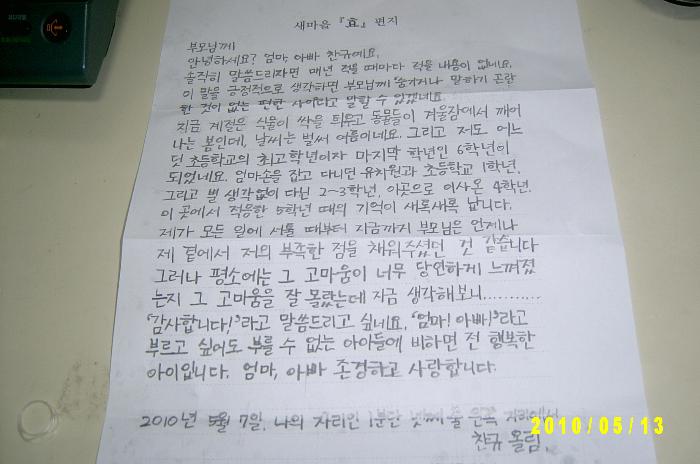 새마음 『효』 편지
부모님께
안녕하세요? 엄마, 아빠 찬규예요.
솔직히 말씀드리자면 매년 적을 때마다 적을 내용이 없네요.
이 말을 긍정적으로 생각하면 부모님께 숨기거나 말하기 곤란
한 것이 없는 편한 사이라고 말할 수 있겠네요.
지금 계절은 식물이 싹을 틔우고 동물들이 겨울잠에서 깨어
나는 봄인데, 날씨는 벌써 여름이네요. 그리고 저도 어느
덧 초등학교의 최고학년이자 마지막 학년인 6학년이
되었네요. 엄마손을 잡고 다니던 유치원과 초등학교 1학년,
그리고 별 생각없이 다닌 2~3학년, 이곳으로 이사온 4학년,
이 곳에서 적응한 5학년 때의 기억이 새록새록 납니다.
제가 모든 일에 서툴 때부터 지금까지 부모님은 언제나
제 곁에서 저의 부족한 점을 채워주셨던 것 같습니다
그러나 평소에는 그 고마움이 너무 당연하게 느껴졌
는지 그 고마움을 잘 몰랐는데 지금 생각해보니...........
'감사합니다!'라고 말씀드리고 싶네요. '엄마! 아빠!'라고
부르고 싶어도 부를 수 없는 아이들에 비하면 전 행복한
아이입니다. 엄마, 아빠 존경하고 사랑합니다.
2010년 5월 7일, 나의 자리인 1분단 넷째 줄 왼쪽 자리에서
찬규 올림.
2010/05/13